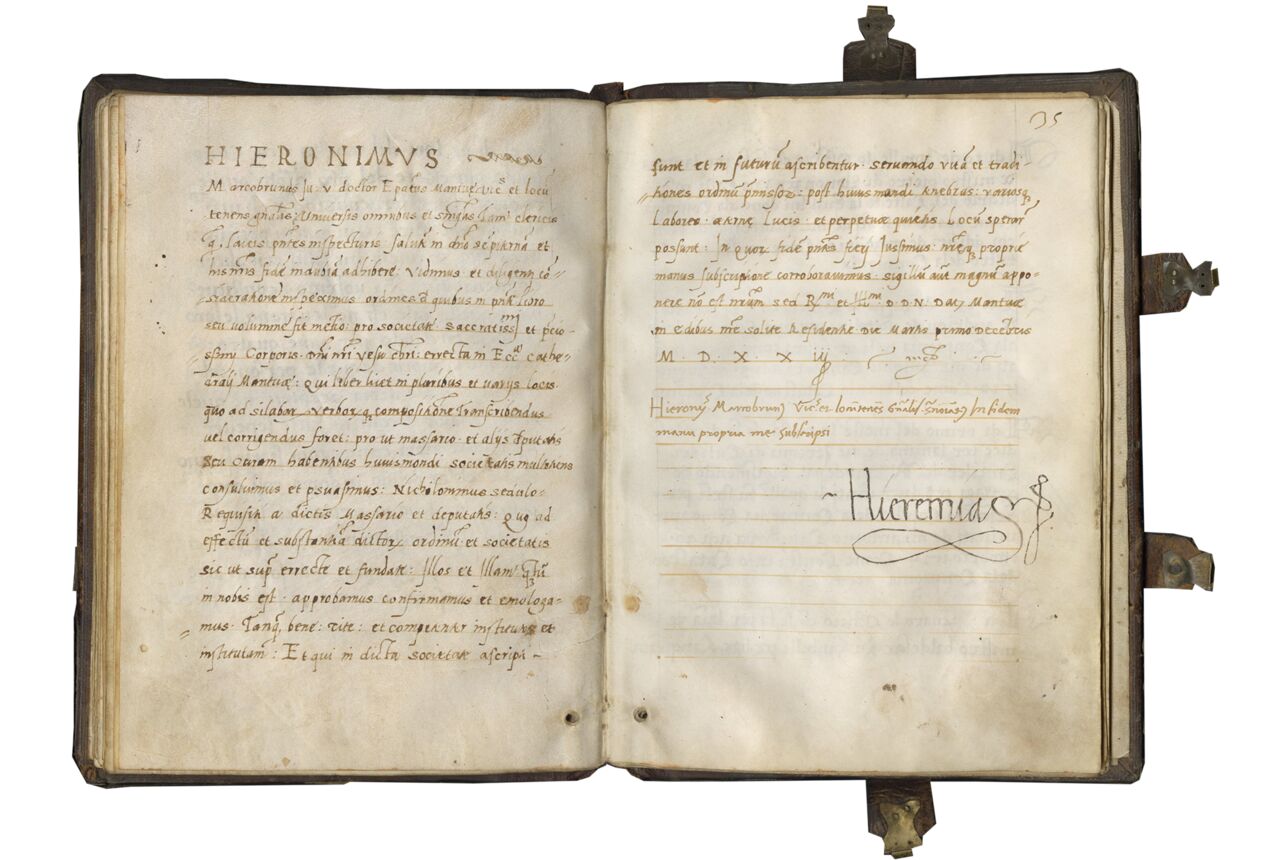 HIERONIMVS
Marcobrunus Ju. v doctor Epatus Mantue Vic et locu
tenens gnalis Universis omnibus et singulis tam clericis
q laicis pntes inspecturis salutem in dno sempiterna et
his nris fide indubia adhibere. Vidimus et diligenti co=
sideratione inspeximus ordines d quibus in pnti libro
seu volumine fit metio: pro societate sacratissmi et pcio-
ssimi Corporis dni nri yesu chri: errecta in Ecca cathe=
dralj Mantuæ: qui liber licet in pluribus et varijs locis
quo ad silabar verbor q compositione Transcribendus
vel corrigendus foret: pro ut massario et alijs Dputatis
seu curam habentibus huiusmondi societatis multotiens
consuluimus et psuasimus: Nicholominus sedulo-
Requisiti a dictis Massario et deputatis: Quo ad
effectu et substantia dictor ordinu et societatis
sic ut sup errecte et fundate: Illos et Illam qtu
in nobis est approbamus confirmamus et emologa=
mus Tanq bene: rite: et competenter institutos et
institutam: Et qui in dicta societate ascripti -
35
sunt et in futuru ascribentur servando vita et tradi-
tiones ordinu pmissor: post huius mundi tenebras: variosq
Labores æternæ Lucis et perpetuæ quietis Locu sperar
possunt: In quor fide pntes fierj Jussimus: nreq proprie
manus subscriptione corroboravimus sigillu aut magnu appo-
nere no est nrum sed Rmi et Illmi D. D. N. Dat Mantuæ
in edibus nre solite Residentie Die Martis primo Decebris
M. D. X X iij
Hierony Marcobrun Vic et locutenens Gnalis In fidem
manu propria me subscripsi
Hieremias